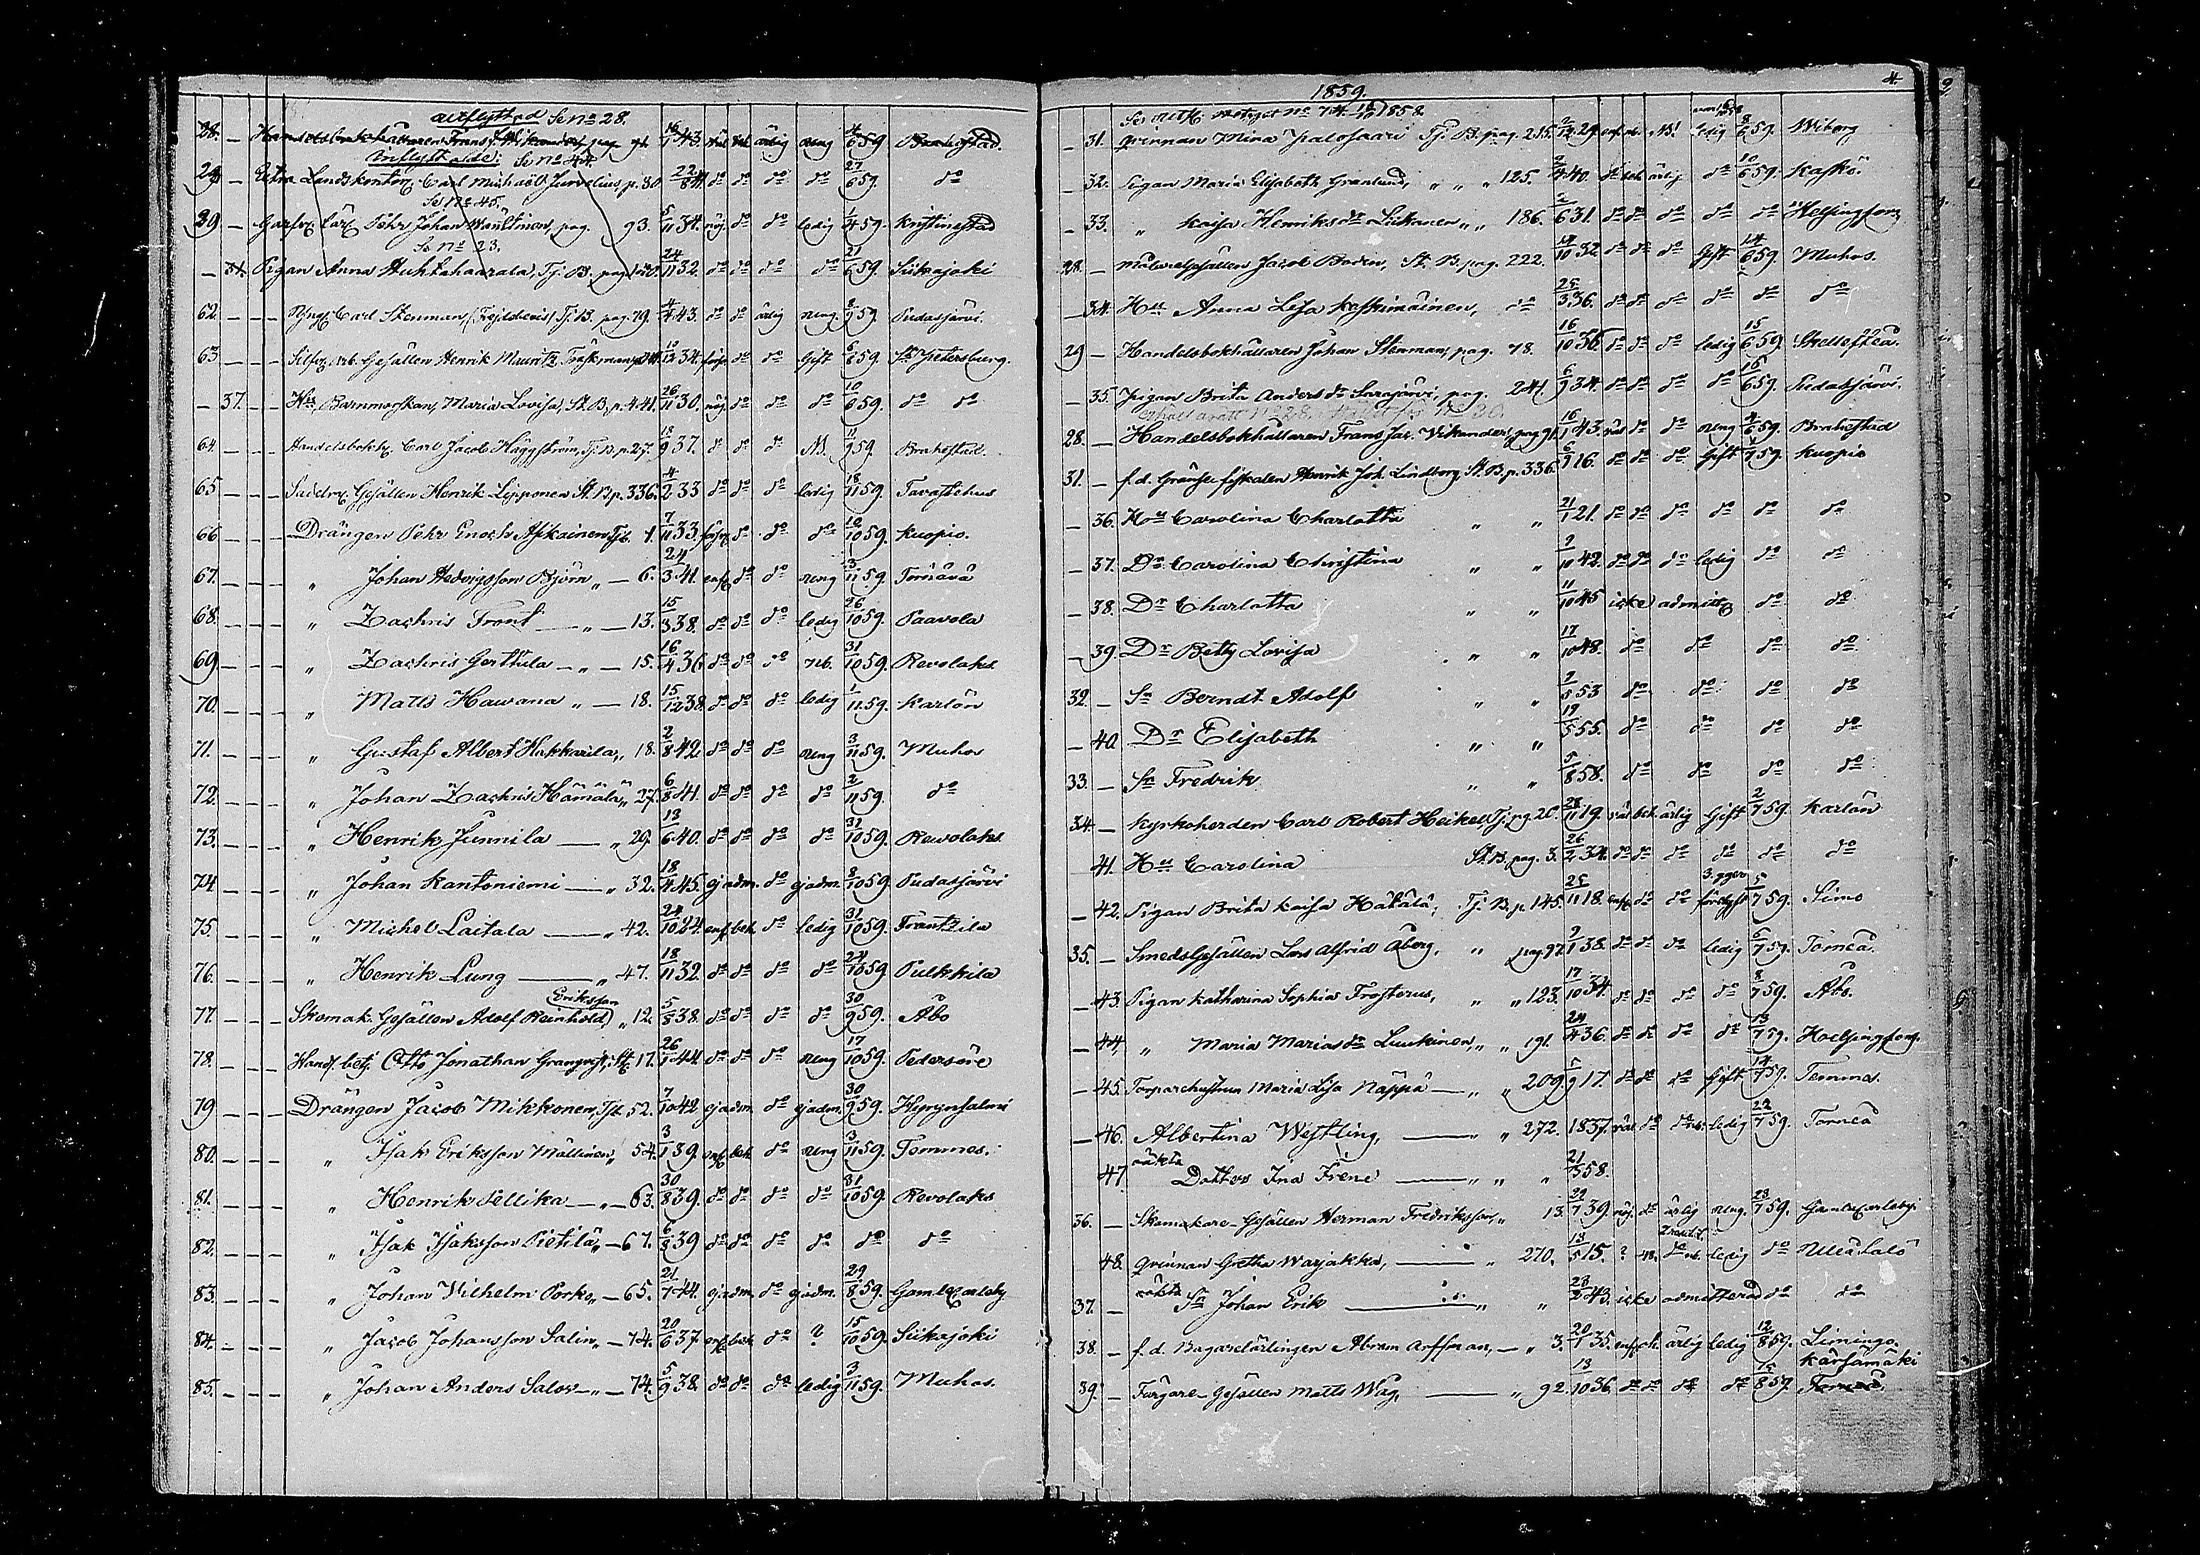 utflyttad Se No 28.
28. — Handelsbokhållaren Frans J. Wikander pag. 91. 16/1 43. väl bek ärlig neng 4/6 59 Brahestad
Inflyttade: Se No 44.
29 — Extra Landskontor. Carl Michaël Jurvelius, p. 30 22/8 41 do do do do 27/6 59. do
Se No 45.
29 — Garfv. Lärl. Pehr Johan Wänttinen, pag. 93. 5/11 34. nöj. do do ledig 1/4 59. Kristinestad
Se No 23.
— 31. Pigan Anna Huhtahaarala, Tj. B. pag. 180. 24/11 32. do do do do 21/6 59. Siikajoki
62. — — — Yngl. Carl Stenman, Tj. B. pag. 79. 4/4 43. do do ärlig neng. 8/9 59. Pudasjärvi.
63 — — — Gesällen Henrik Mauritz Träskman 10/12 34. do do Gift 6/6 59. St Petersburg.
— 37. — — Hu, Barnmorskan, Maria Lovisa, St. B, p. 441. 26/11 30. nöj. do do do 10/6 59. do do
64. — — — Handelsbokh. Carl Jacob Häggström, Tj. B. p. 27. 18/9 37. do do do N. 11/9 59. Brahestad.
65 — — — Gesällen Henrik Lipponen St. B. p. 336. 4/2 33 do do do ledig 18/11 59. Tavastehus
66 — — — Drängen Pehr Enoch Askainen, Tjb. 1. 7/11 33. do do do 10/10 59. Kuopio.
67. — — — „ Johan Hedvigsson Björn „ — 6. 24/3 41. enf do do neng 3/11 59. Tornävä
68. — — — „ Zachris Front — „ — 13. 15/3 38. do do do ledig 26/10 59. Paavola
69 — — — „ Zachris Gerttula — „ — 15. 16/4 36 do do do 31/10 59. Revolaks
70. — — — „ Matts Hawana „ — 18. 15/12 38. do do do ledig 1/11 59. Karlön
71. — — — „ Gustaf Albert Hakkarila, „ 18. 2/8 42. do do do neng 3/11 59. Muhos
72. — — — „ Johan Zachris Hämälä „ 27. 6/8 41. do do do do 2/11 59. do
73. — — — „ Henrik Junnila — „ 29. 13/6 40. do do do do 31/10 59. Rewolaks
74 — — — „ Johan Kantoniemi — „ 32. 18/4 45. ej adm. do ej adm. 8/10 59. Pudasjärvi
75. — — — „ Michel Laitala — „ 42. 24/10 24. enf bek do ledig 31/10 59. Frantzila
76. — — — „ Henrik Lung — „ 47. 18/11 32. do do do do 24/10 59 Pulkkila
77. — — — Skomak. Gesällen Adolf Reinhold Eriksson „ 12. 5/8 38. do do do do 30/9 59. Åbo
78. — — — Handl. betj. Otto Jonathan Granqvist, St. 17. 26/1 44 do do do neng 17/10 59. Pedersöre
79 — — — Drängen Jacob Mikkonen, Tjb. 52. 7/10 42 ej adm. do ej adm. 30/9 59. Hyrynsalmi
80. — — — „ Isak Eriksson Mällinen „ 54. 3/1 39. enf bek do neng 3/11 59. Temmes.
81. — — — „ Henrik Sellika — „ — 63. 30/8 39. do do do do 31/10 59. Revolaks
82. — — — „ Isak Isaksson Pietilä, „ — 67. 6/8 39 do do do do do do
83. — — — „ Johan Wilhelm Porko „ — 65. 21/7 44. ej adm. do ej adm. 29/8 59. Gamlacarleby
84. — — — „ Jacob Johansson Salin „ — 74. 20/6 37. enf bek do ? 15/10 59. Siikajoki
85. — — — „ Johan Anders Salow — „ — 74. 5/9 38. do do do ledig 3/11 59. Muhos.
1859. 4.
Se utfl. betyget No 74. 1858.
— 31. Qvinnan Mina Jralosaari Tj. B. pag. 255. 2/12 29. N! ledig 8/6 59. Wiborg
— 32. Pigan Maria Elisabeth Granlund, „ „ „ 125. 2/4 40. do bek ärlig do 10/6 59. Kaskö
— 33. „ Kaisa Henriksdr Liikanen „ „ 186. 2/6 31. do do do do do Helsingfors
28. — Målare Gesällen Jacob Boden, St. B. pag. 222. 14/10 32. do do do Gift 14/6 59. Muhos.
— 34. Hu Anna Lisa Keskimäinen, do 25/3 36. do do do do do do
29 — Handelsbokhållaren Johan Stenman, pag. 78. 16/10 36. do do do ledig 15/6 59. Skellefteå.
— 35. Pigan Brita Andersdr Sarajärvi, pag. 241. 6/9 34. do do do do 16/6 59. Pudasjärvi.
28. — Handelsbokhållaren Frans Jac. Wikander, pag 91. 16/1 43. väl do do neng 4/6 59. Brahestad
31. — f. d. Gränse fiskalen Henrik Joh. Lindberg St. B. p. 336. 6/9 16. do do do Gift 1/7 59. Kuopio
— 36. Hu Carolina Charlotta „ „ 21/1 21. do do do do do do
— 37. Dr. Carolina Christina „ „ 2/10 42. do do do ledig do do
— 38. Dr Charlotta „ „ 11/10 45 icke admitt do do
— 39. Dr Betty Lovisa „ „ 17/10 48. do do do do do
32. — Sn Berndt Adolf „ „ 2/5 53 do do do do
— 40. Dr Elisabeth „ „ 19/5 55. do do do do
33. — Sn Fredrik „ „ 5/8 58. do do do do
34. — Kyrkoherden Carl Robert Heikel, Tj. pg. 20. 28/11 19. väl bek ärlig Gift 2/7 59. Karlön
41. Hu Carolina St. B. pag. 3. 26/2 34. do do do do do do
3. gger
— 42. Pigan Brita Kaisa Hätälä, Tj. B. p. 145. 25/11 18. enf do do 5/7 59. Simo
35. — Smedsgesällen Lars Alfrid Åberg, „ pag 97. 2/1 38. do do do ledig 6/7 59. Torneå.
— 43. Pigan Katharina Sophia Frosterus, „ „ 123. 17/10 34. do do do do 8/7 59. Åbo.
— 44. „ Maria Mariasdr Luukinen, „ „ 191. 24/4 36. do do do do 13/7 59. Helsingfors.
— 45. Torparehustrun Maria Lisa Näppä — „ „ 209. 5/9 17. do do do Gift 14/7 59. Temmes.
— 46. Albertina Westling, — „ „ 272. 1837. väl do do ledig 22/7 59. Torneå
47. oäkta Dotter Ina Irene — „ „ „ 21/5 58.
36. — Skomakare-Gesällen Herman Fredriksson, „ 13. 29/7 39. nöj. do ärlig neng. 23/7 59. Gamlacarleby.
48. Qvinnan Gretha Warjakka, — „ 270. 13/5 15. ? ledig do Uleåsalo
37. — oäkta Sn Johan Erik — „ „ 28/2 43. icke admitterad do do
38. — f. d. Bagarelärlingen Abram Arffman, — „ 3. 20/1 35. enf ärlig ledig 12/8 59. Limingo.
39. — Färgare-Gesällen Matts Wåg, — „ 92. 13/10 36. do do do do 15/8 59. Kärsämäki Torneå.